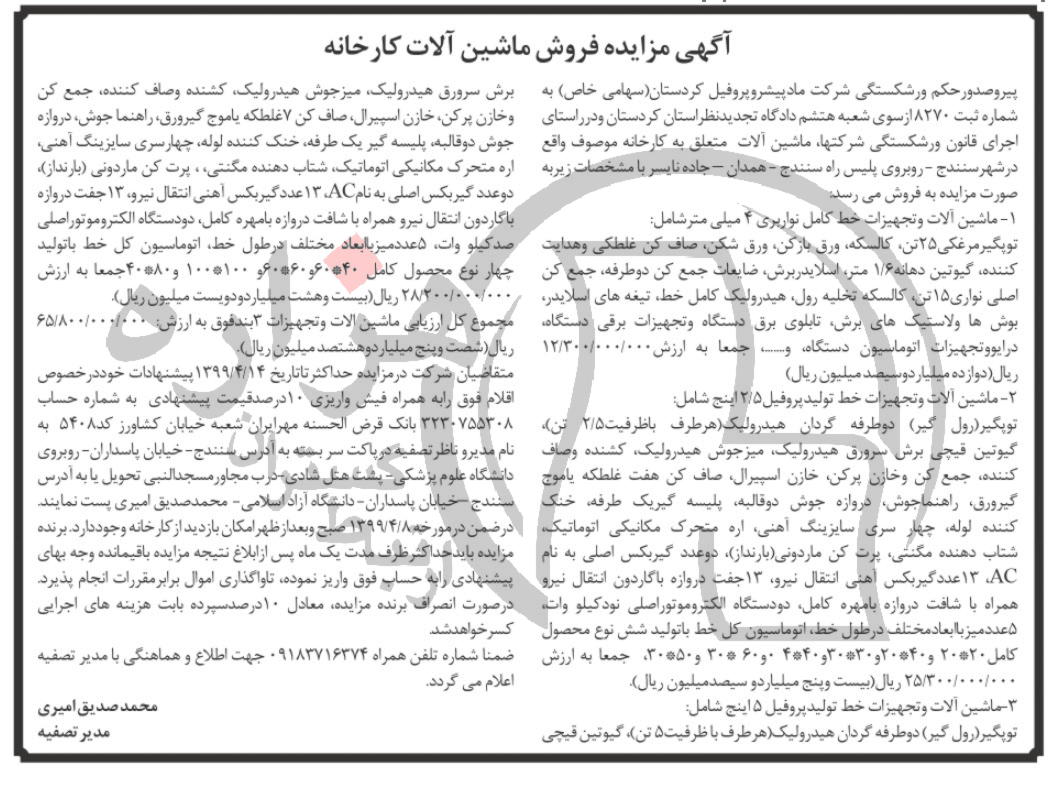 آگهی مزایده فروش ماشین آلات کارخانه
پیروصدورحکم ورشکستگی شرکت مادپیشروپروفیل کردستان(سهامی خاص) به
شماره ثبت ۸۲۷۰ ازسوی شعبه هشتم دادگاه تجدیدنظراستان کردستان ودرراستای
اجرای قانون ورشکستگی شرکتها، ماشین آلات متعلق به کارخانه موصوف واقع
درشهرسنندج -روبروی پلیس راه سنندج -همدان –جاده نایسر با مشخصات زیربه
صورت مزایده به فروش می رسد:
۱- ماشین آلات وتجهیزات خط کامل نواربری ۴ میلی مترشامل:
توپگیرمرغکی۲۵تن، کالسکه، ورق بازکن، ورق شکن، صاف کن غلطکی وهدایت
کننده، گیوتین دهانه۱/۶ متر، اسلایدربرش، ضایعات جمع کن دوطرفه، جمع کن
اصلی نواری۱۵تن، کالسکه تخلیه رول، هیدرولیک کامل خط، تیغه های اسلایدر،
بوش ها ولاستیک های برش، تابلوی برق دستگاه وتجهیزات برقی دستگاه،
درایووتجهیزات اتوماسیون دستگاه، و.......، جمعا به ارزش۱۲/۳۰۰/۰۰۰/۰۰۰
ریال(دوازده میلیاردوسیصدمیلیون ریال)
۲- ماشین آلات وتجهیزات خط تولیدپروفیل۲/۵ اینچ شامل:
توپگیر(رول گیر) دوطرفه گردان هیدرولیک(هرطرف باظرفیت۲/۵ تن)،
گیوتین قیچی برش سرورق هیدرولیک، میزجوش هیدرولیک، کشنده وصاف
کننده، جمع کن وخازن پرکن، خازن اسپیرال، صاف کن هفت غلطکه یاموج
گیرورق، راهنماجوش، دروازه جوش دوقالبه، پلیسه گیریک طرفه، خنک
کننده لوله، چهار سری سایزینگ آهنی، اره متحرک مکانیکی اتوماتیک،
شتاب دهنده مگنتی، پرت کن ماردونی(بارنداز)، دوعدد گیربکس اصلی به نام
AC، ۱۳عددگیربکس آهنی انتقال نیرو، ۱۳جفت دروازه باگاردون انتقال نیرو
همراه با شافت دروازه بامهره کامل، دودستگاه الکتروموتوراصلی نودکیلو وات،
۵عددمیزباابعادمختلف درطول خط، اتوماسیون کل خط باتولید شش نوع محصول
کامل۲۰*۲۰ و۴۰*۲۰و۳۰*۳۰و۴۰*۴۰ و۶۰ *۳۰ و۵۰*۳۰، جمعا به ارزش
۲۵/۳۰۰/۰۰۰/۰۰۰ ریال(بیست وپنج میلیاردو سیصدمیلیون ریال).
۳-ماشین آلات وتجهیزات خط تولیدپروفیل ۵ اینچ شامل:
توپگیر(رول گیر) دوطرفه گردان هیدرولیک(هرطرف با ظرفیت۵ تن)، گیوتین قیچی
برش سرورق هیدرولیک، میزجوش هیدرولیک، کشنده وصاف کننده، جمع کن
وخازن پرکن، خازن اسپیرال، صاف کن ۷غلطکه یاموج گیرورق، راهنما جوش، دروازه
جوش دوقالبه، پلیسه گیر یک طرفه، خنک کننده لوله، چهارسری سایزینگ آهنی،
اره متحرک مکانیکی اتوماتیک، شتاب دهنده مگنتی، ، پرت کن ماردونی (بارنداز)،
دوعدد گیربکس اصلی به نامAC، ۱۳عددگیربکس آهنی انتقال نیرو، ۱۳جفت دروازه
باگاردون انتقال نیرو همراه با شافت دروازه بامهره کامل، دودستگاه الکتروموتوراصلی
صدکیلو وات، ۵عددمیزباابعاد مختلف درطول خط، اتوماسیون کل خط باتولید
چهار نوع محصول کامل ۴۰*۶۰و۶۰*۶۰و ۱۰۰*۱۰۰ و۸۰*۴۰جمعا به ارزش
۲۸/۲۰۰/۰۰۰/۰۰۰ ریال(بیست وهشت میلیاردودویست میلیون ریال).
مجموع کل ارزیابی ماشین الات وتجهیزات ۳بندفوق به ارزش: ۶۵/۸۰۰/۰۰۰/۰۰۰
ریال(شصت وپنج میلیاردوهشتصدمیلیون ریال).
متقاضیان شرکت درمزایده حداکثرتاتاریخ ۱۳۹۹/۴/۱۴ پیشنهادات خوددرخصوص
اقلام فوق رابه همراه فیش واریزی ۱۰درصدقیمت پیشنهادی به شماره حساب
۳۲۳۰۷۵۵۳۰۸ بانک قرض الحسنه مهرایران شعبه خیابان کشاورز کد۵۴۰۸ به
نام مدیرو ناظرتصفیه درپاکت سر بسته به آدرس سنندج- خیابان پاسداران-روبروی
دانشگاه علوم پزشکی- پشت هتل شادی-درب مجاورمسجدالنبی تحویل یا به آدرس
سنندج -خیابان پاسداران-دانشگاه آزاد اسلامی- محمدصدیق امیری پست نمایند.
درضمن درمورخه ۱۳۹۹/۴/۸ صبح وبعدازظهرامکان بازدیدازکارخانه وجوددارد. برنده
مزایده بایدحداکثرظرف مدت یک ماه پس ازابلاغ نتیجه مزایده باقیمانده وجه بهای
پیشنهادی رابه حساب فوق واریز نموده، تاواگذاری اموال برابرمقررات انجام پذیرد.
درصورت انصراف برنده مزایده، معادل ۱۰درصدسپرده بابت هزینه های اجرایی
کسرخواهدشد.
ضمنا شماره تلفن همراه ۰۹۱۸۳۷۱۶۳۷۴ جهت اطلاع و هماهنگی با مدیر تصفیه
اعلام می گردد.
محمدصدیق امیری
مدیر تصفیه